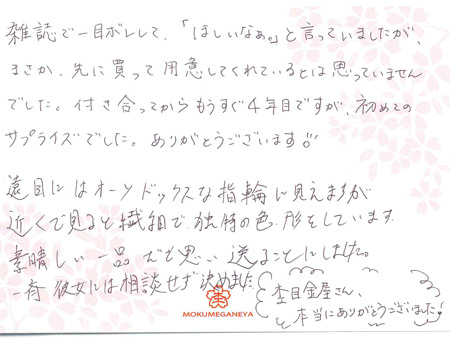 雑誌で一目ボレして、「ほしいなぁ。」と言っていましたが、
まさか、先に買って用意してくれているとは思っていません
でした。付き合ってからもうすぐ4年目ですが、初めての
サプライズでした。ありがとうございます。
遠目にはオーソドックスな指輪に見えますが
近くで見ると繊細で、独特の色、形をしています。
素晴しい一品だと思い、送ることにしました。
一斉彼女には相談せず決めました
杢目金屋さん、
本当にありがとうございました!
MOKUMEGANEYA